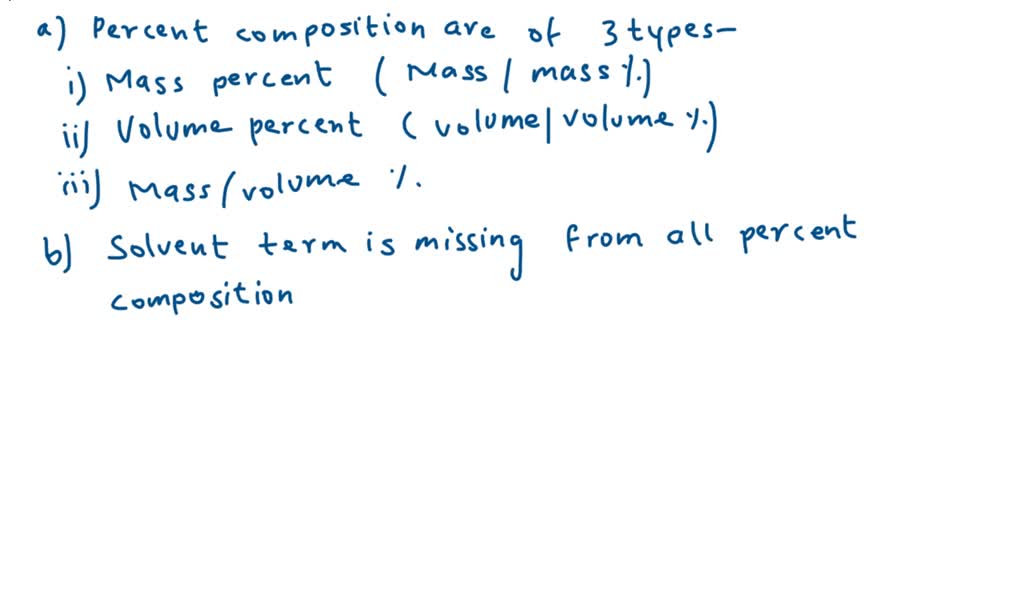 a) Percent composition are of 3 types-
i) Mass percent ( Mass / mass %)
ii) Volume percent ( volume/volume %)
iii) Mass/volume %.
b) Solvent term is missing from all percent
composition